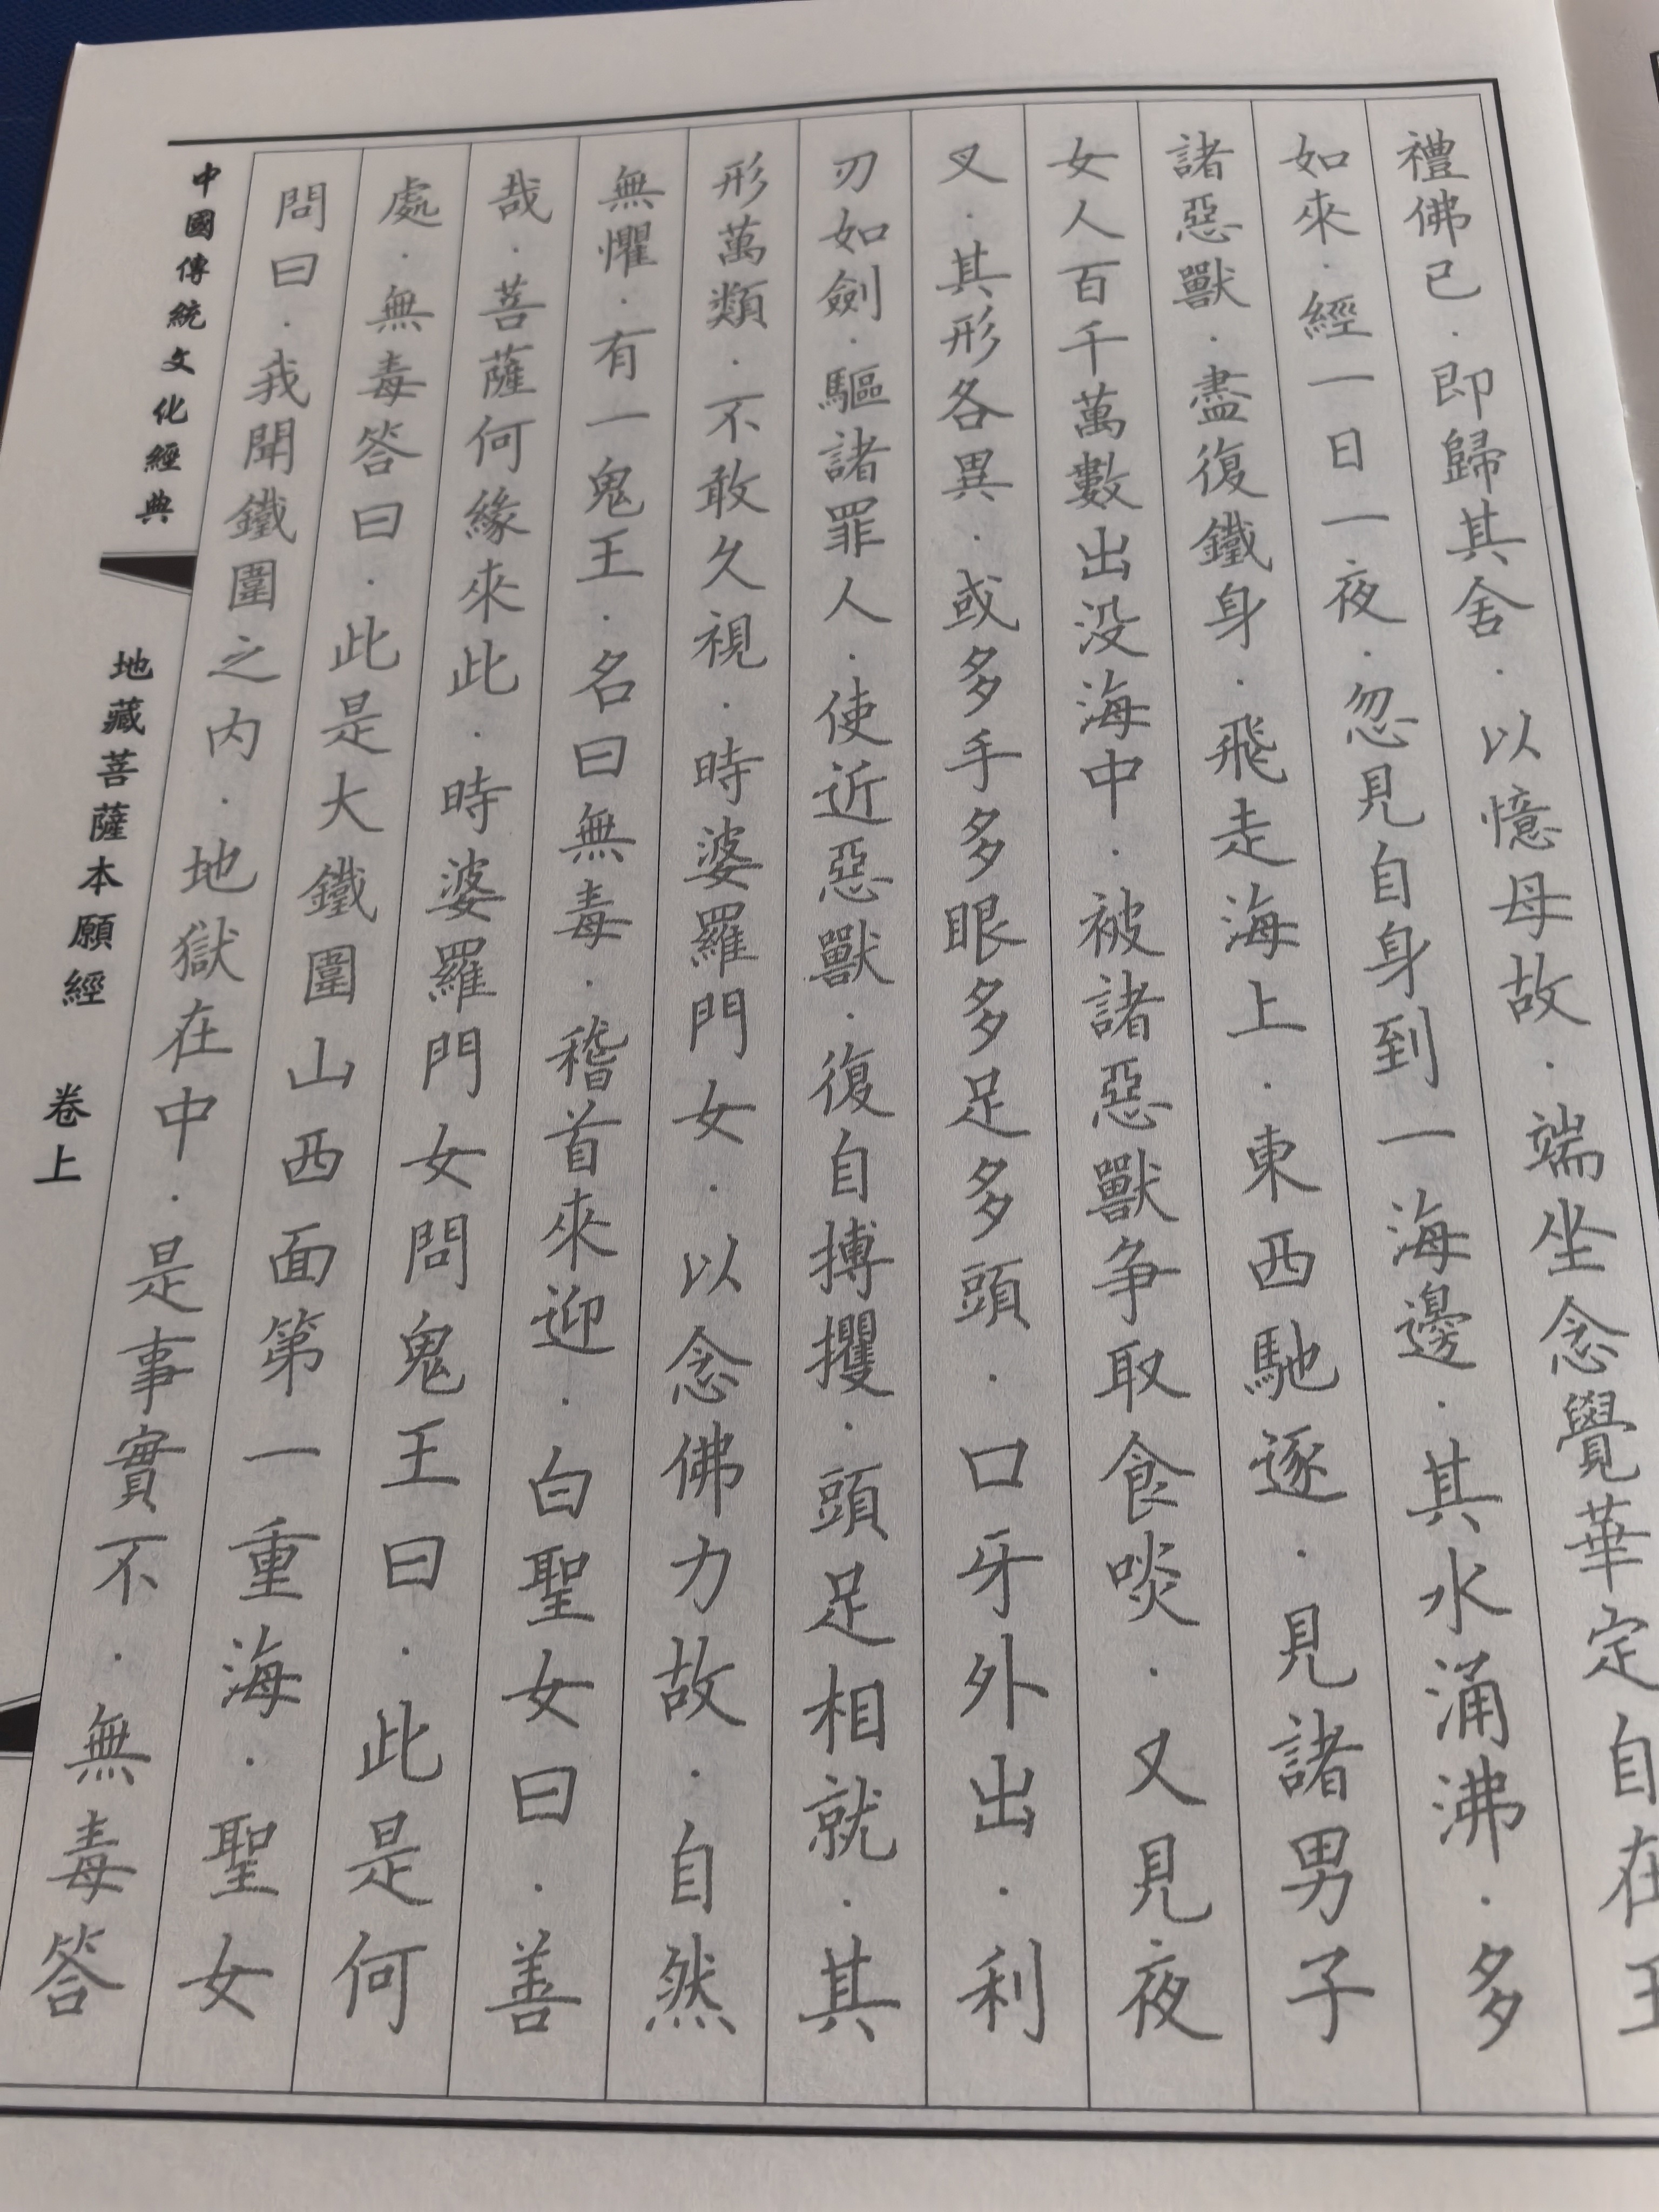 禮佛已·即歸其舍·以憶母故·端坐念覺華定自在王
如來·經一日一夜·忽見自身到一海邊·其水涌沸·多
諸惡獸·盡復鐵身·飛走海上·東西馳逐·見諸男子
女人百千萬數出没海中·被諸惡獸争取食啖·又見夜
叉·其形各異·或多手多眼多足多頭·口牙外出·利
刃如劍·驅諸罪人·使近惡獸·復自搏攫·頭足相就·其
形萬類·不敢久視·時婆羅門女·以念佛力故·自然
無懼·有一鬼王·名曰無毒·稽首來迎·白聖女曰·善
哉·菩薩何緣來此·時婆羅門女問鬼王曰·此是何
處·無毒答曰·此是大鐵圍山西面第一重海·聖女
問曰·我聞鐵圍之内·地獄在中·是事實不·無毒答
中國傳統文化經典
地藏菩薩本願經 卷上